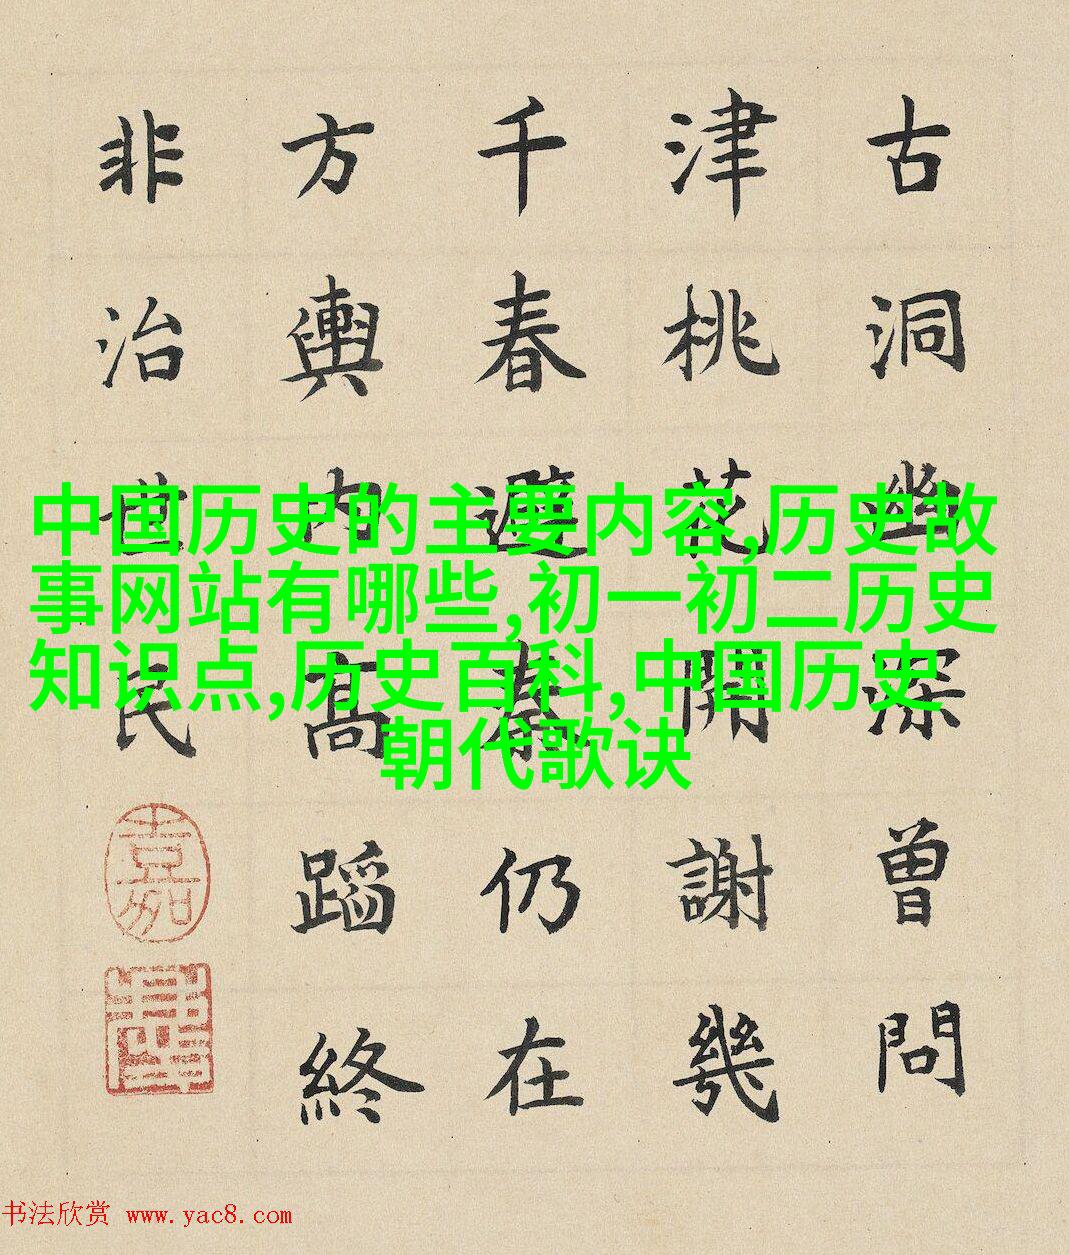 古洞幽深曾問
津桃花開謝幾
千春避秦仍在
方輿内高蹈終
非治世民
中国历史的主要内容,历史故
事网站有哪些,初一初二历史
知识点,历史百科,中国历史
朝代歌诀
书法欣赏 www.yac8.com